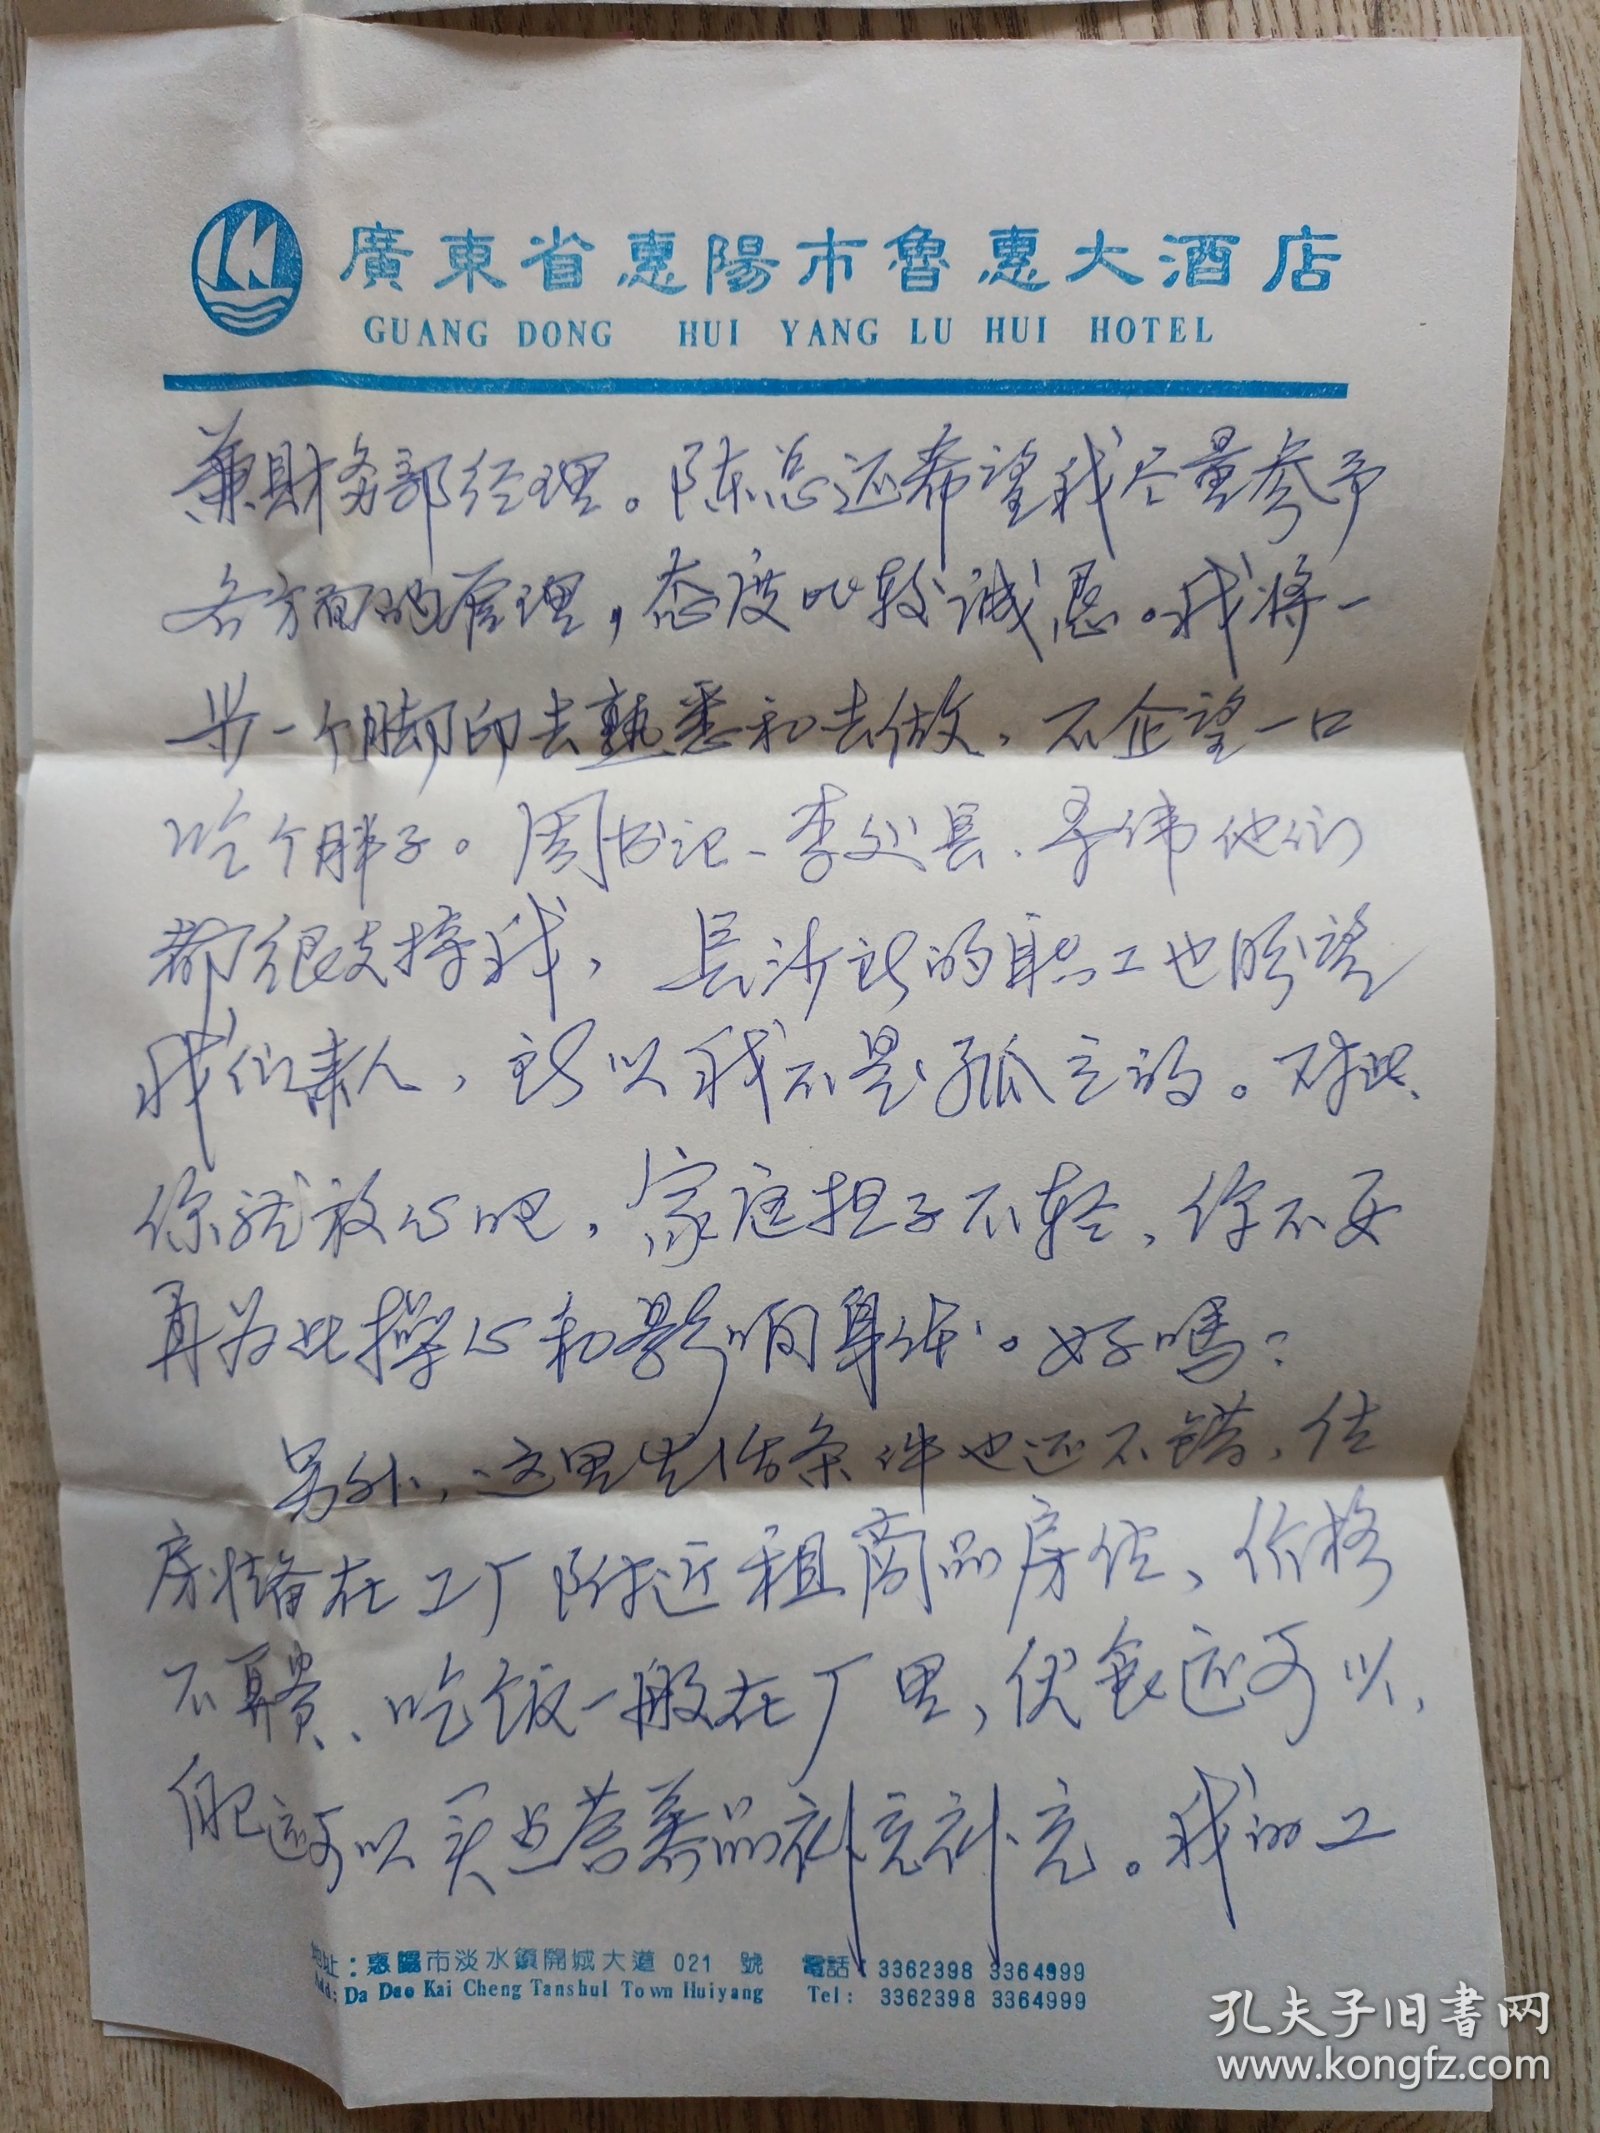 廣東省惠陽市魯惠大酒店
GUANG DONG HUI YANG LU HUI HOTEL
兼财务部经理。陈总还希望我尽量参予
各方面的管理，态度比较诚恳。我将一
步一个脚印去熟悉和去做，不企望一口
吃个胖子。周书记、李处长、寻伟他们
都很支持我，长沙所的职工也盼望
我们来人，所以我不是孤立的。对此、
你就放心吧，家庭担子不轻，你不要
再为此操心和影响身体。好吗？
另外，这里生活条件也还不错，住
房准备在工厂附近租商品房住、价格
不算贵、吃饭一般在厂里，伙食还可以，
自己还可以买点营养品补充补充。我的工
地址：惠陽市淡水鎮開城大道 021 號 電話：3362398 3364999
Add: Da Dao Kai Cheng Tanshul Town Huiyang Tel: 3362398 3364999
孔夫子旧书网
www.kongfz.com